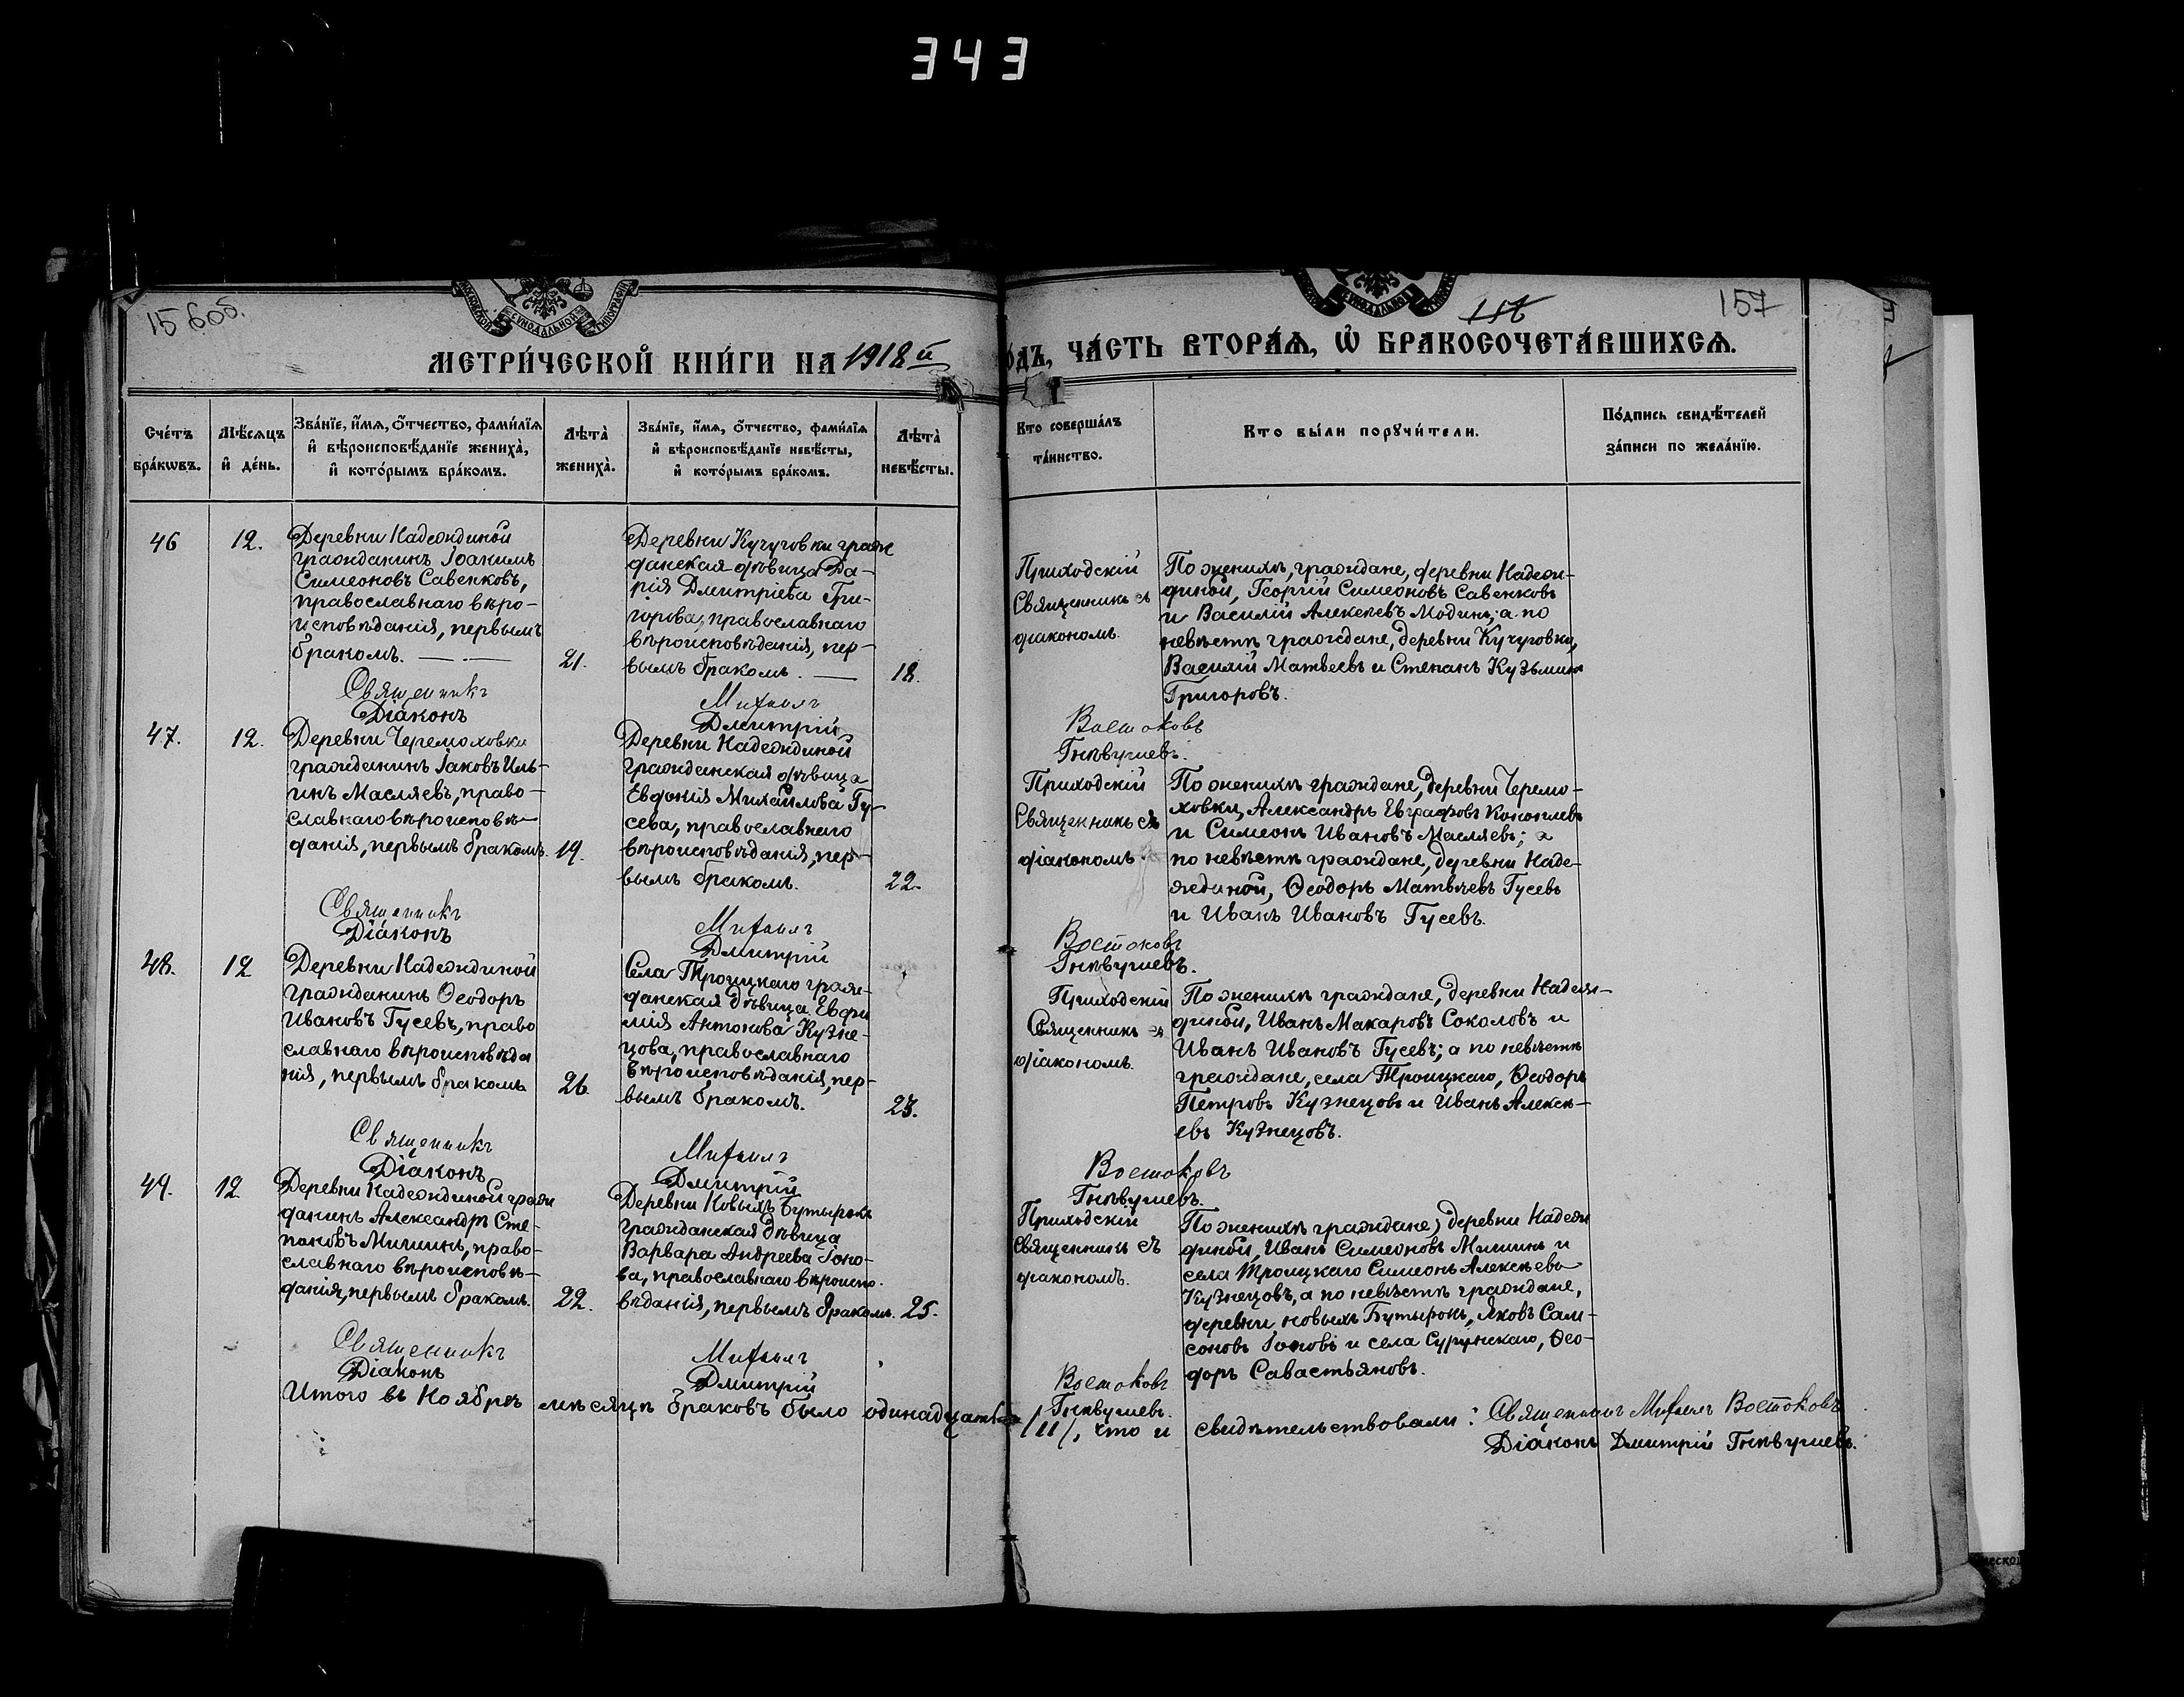 343
15606.
157
МОСКОВСКОЙ СѴНОДАЛЬНОЙ ТИПОГРАФІИ
СѴНОДАЛЬНОЙ
МЕТРИ́ЧЕСКОЙ КНИ́ГИ НА 1918 й
О́ДЪ, ЧА́СТЬ ВТОРА́Ѧ, Ѡ҆ БРАКОСОЧЕТА́ВШИХСѦ.
Сче́тъ бра́кѡвъ.
Мѣ́сѧцъ и҆ де́нь.
Зва́нїе, и҆́мѧ, ѻ҆́тчество, фами́лїѧ и҆ вѣроисповѣ́данїе жениха̀, и҆ кото́рымъ бра́комъ.
Лѣта̀ жениха̀.
Зва́нїе, и҆́мѧ, ѻ҆́тчество, фами́лїѧ и҆ вѣроисповѣ́данїе невѣ́сты, и҆ кото́рымъ бра́комъ.
Лѣта̀ невѣ́сты.
Кто соверша́лъ та́инство.
Кто бы́ли порꙋчи́тели.
По́дпись свидѣ́телей за́писи по жела́нїю.
46
12.
Деревни Надеждиной
гражданинъ Іоакимъ
Симеоновъ Савенковъ,
православнаго вѣро-
исповѣданія, первымъ
бракомъ.
21.
Деревни Кучуговки граж
данская дѣвица Да-
рія Дмитріева Гри-
горова, православнаго
вѣроисповѣданія, пер-
вымъ бракомъ.
18.
Приходскій
Священникъ съ
діакономъ.
По женихѣ, граждане, деревни Надеж-
диной, Георгій Симеоновъ Савенковъ
и Василій Алексѣевъ Модинъ; а по
невѣстѣ граждане, деревни Кучуговки,
Василій Матвеевъ и Степанъ Кузьминъ
Григоровъ.
Священникъ Михаилъ Востоковъ
Діаконъ Дмитрій Гнѣвушевъ.
47.
12.
Деревни Черемоховки
гражданинъ Іаковъ Иль-
инъ Масляевъ, право-
славнаго вѣроисповѣ-
данія, первымъ бракомъ.
19.
Деревни Надеждиной
гражданская дѣвица
Евдокія Михайлова Гу-
сева, православнаго
вѣроисповѣданія, пер-
вымъ бракомъ.
22.
Приходскій
Священникъ съ
діакономъ
По женихѣ граждане, деревни Черемо-
ховки, Александръ Евграфовъ Коноплевъ
и Симеонъ Ивановъ Масляевъ; а
по невѣстѣ граждане, деревни Наде-
ждиной, Ѳеодоръ Матвѣевъ Гусевъ
и Иванъ Ивановъ Гусевъ.
Священникъ Михаилъ Востоковъ
Діаконъ Дмитрій Гнѣвушевъ.
48.
12
Деревни Надеждиной
гражданинъ Ѳеодоръ
Ивановъ Гусевъ, право
славнаго вѣроисповѣда
нія, первымъ бракомъ
26.
Села Троицкаго граж-
данская дѣвица Евфи
мія Антонова Кузне-
цова, православнаго
вѣроисповѣданія, пер-
вымъ бракомъ.
23.
Приходскій
Священникъ съ
діакономъ.
По женихѣ граждане, деревни Надеж-
диной, Иванъ Макаровъ Соколовъ и
Иванъ Ивановъ Гусевъ; а по невѣстѣ
граждане, села Троицкаго, Ѳеодоръ
Петровъ Кузнецовъ и Иванъ Алексѣ-
евъ Кузнецовъ.
Священникъ Михаилъ Востоковъ
Діаконъ Дмитрій Гнѣвушевъ.
49.
12.
Деревни Надеждиной граж
данинъ Александръ Сте-
пановъ Мишинъ, право-
славнаго вѣроисповѣ-
данія, первымъ бракомъ.
22.
Деревни Новыхъ Бутырокъ
гражданская дѣвица
Варвара Андреева Гоно-
ва, православнаго вѣроиспо-
вѣданія, первымъ бракомъ.
25.
Приходскій
Священникъ съ
діакономъ.
По женихѣ граждане, деревни Надеж
диной, Иванъ Симеоновъ Мишинъ и
села Троицкаго Симеонъ Алексѣевъ
Кузнецовъ, а по невѣстѣ граждане,
деревни новыхъ Бутырокъ, Яковъ Сам-
соновъ Гоновъ и села Сурунскаго, Ѳео-
доръ Савастьяновъ.
Священникъ Михаилъ Востоковъ
Діаконъ Дмитрій Гнѣвушевъ.
Итого въ Ноябрѣ мѣсяцѣ браковъ было одинадцать /11/, что и свидѣтельствовали: Священникъ Михаилъ Востоковъ
Діаконъ Дмитрій Гнѣвушевъ.